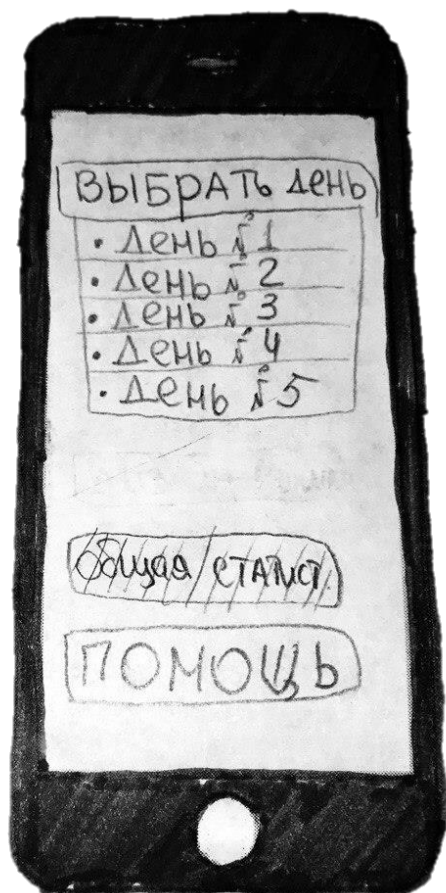 ВЫБРАТЬ день
• День № 1
• День № 2
• День № 3
• День № 4
• День № 5
Общая статист.
ПОМОЩЬ